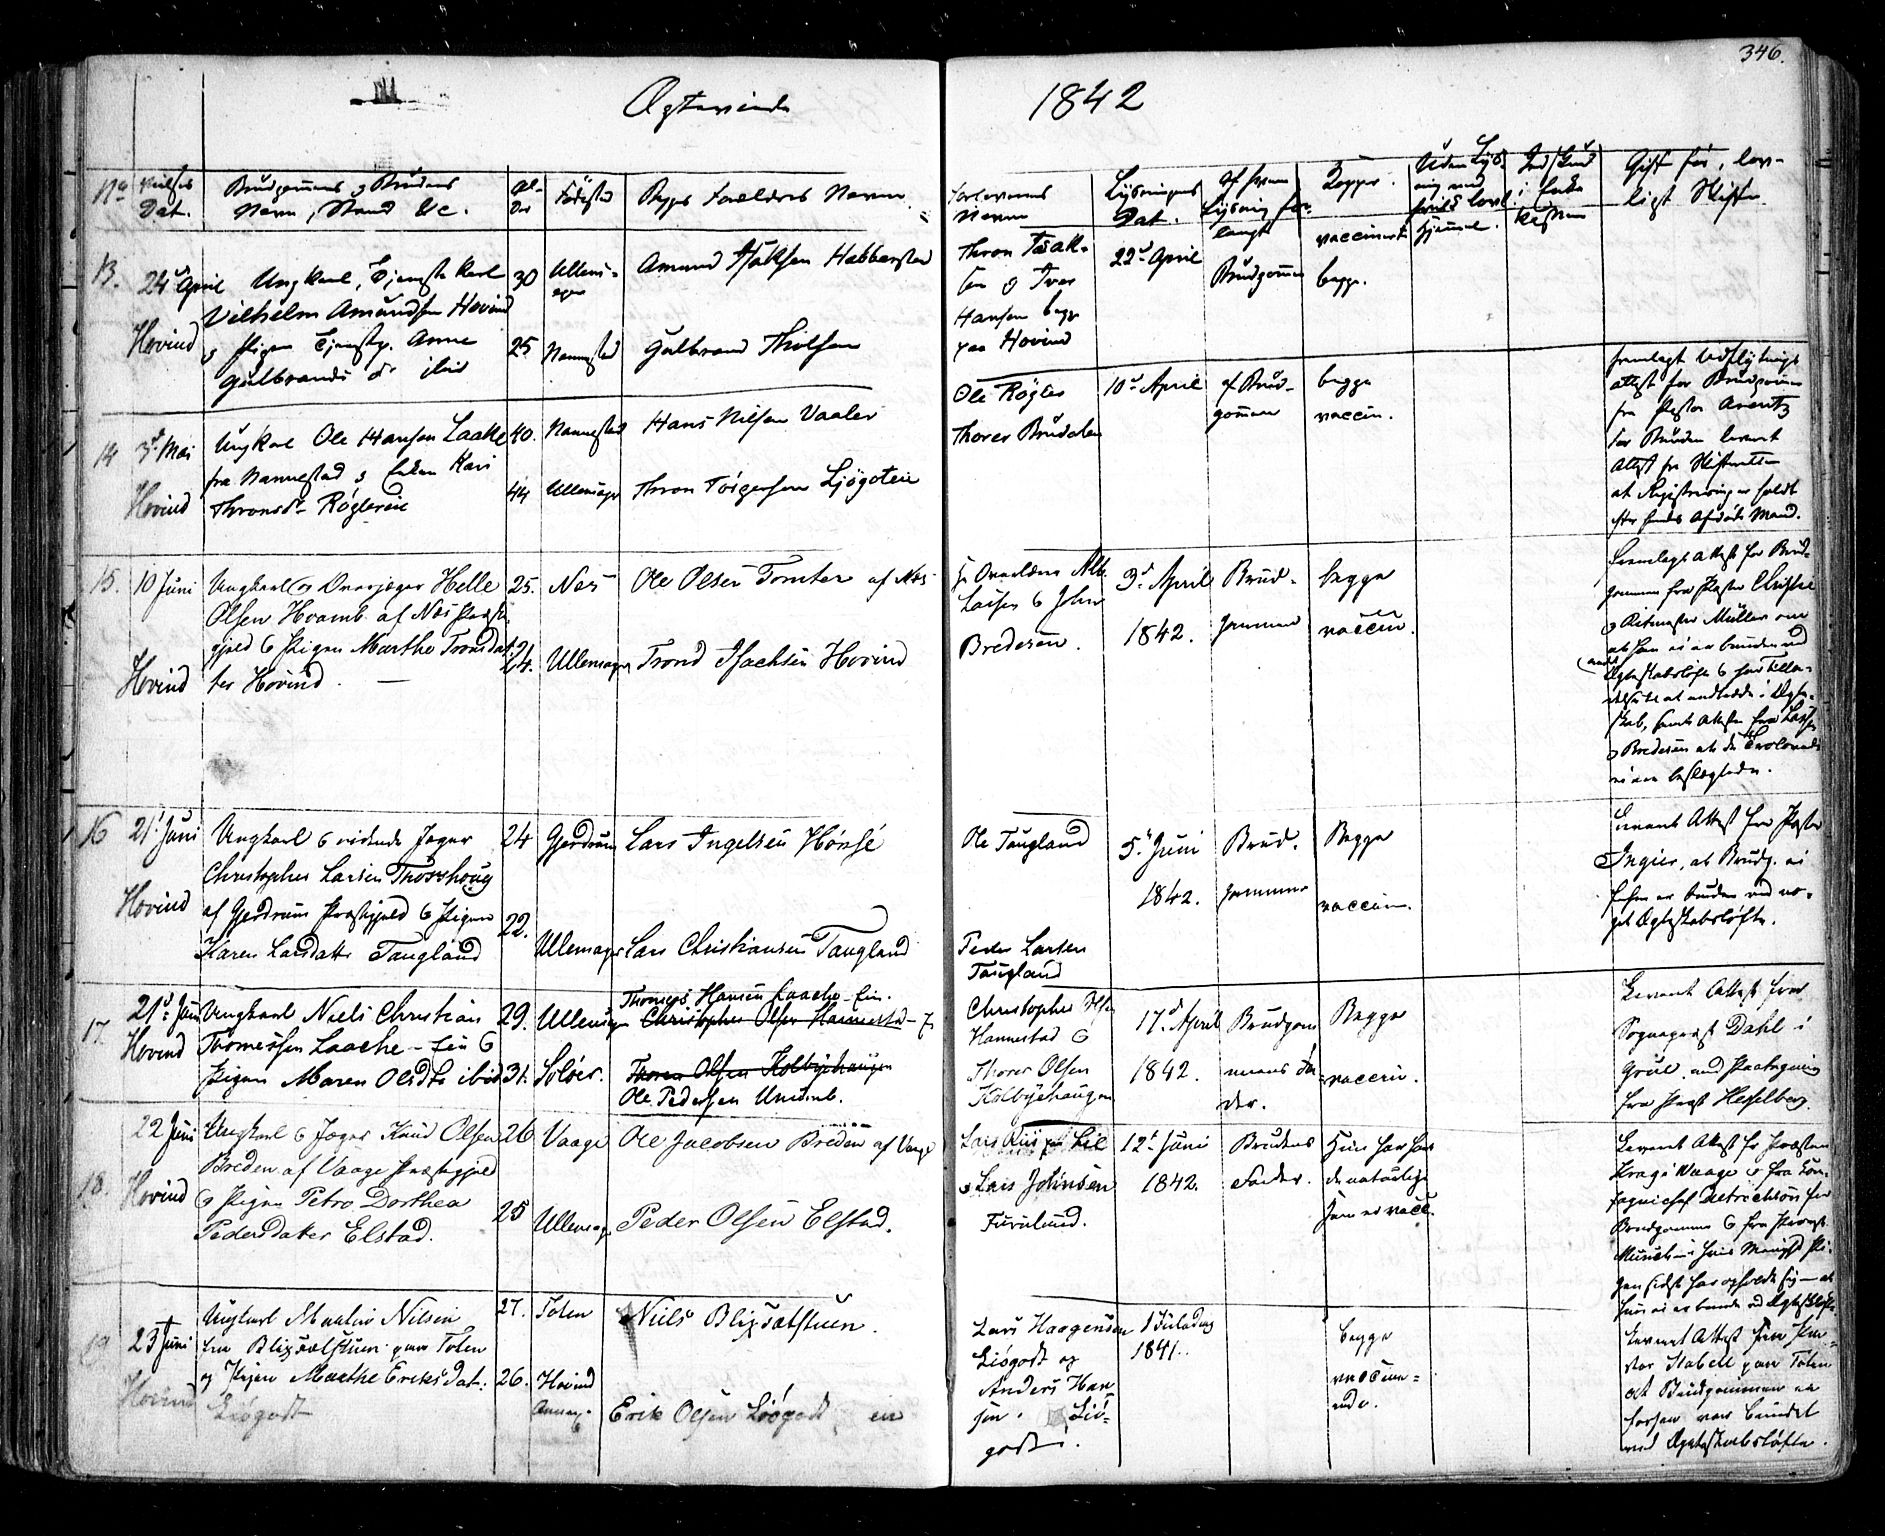 346.
Ægteviede 1842
No
Vielses Dat.
Brudgommens og Brudens Navn, Stand &c.
Al- der
Fødested
Begges Forældres Navne
Forlovernes Navne
Lysningens Dat.
Af hvem Lysning for- langt
Begge vaccinerte
Gift før, lov- ligt Skifte
13.
24d April
Hovind
Ungkarl, Tjenestekarl
Vilhelm Amundsen Hovind
og Pigen Tjenestep. Anne
Gulbrands dr ibid
30
25
Ullens- ager
Nannestad
Amund Isaksen Habberstad
Gulbrand Tholsen
Thron Isak-
sen og Iver
Hansen begge
paa Hovind
22d April
Brudgommen
begge.
14
3d Mai
Hovind
Ungkarl Ole Hansen Laake
fra Nannestad og Enken Kari
Thronsdr Røglereie
40.
44
Nannestad
Ullensager
Hans Nilsen Vaaler
Thron Torgersen Ljøgoteie
Ole Røgler
Thorer Brudalen
10d April
af Brud-
gommen
begge
vaccin.
fremlagt Udflytnings
attest for Brudgommen
fra Pastor Arentz
for Bruden leveret
Attest fra Skifteretten
at Registrering er holdt
efter hendes Afdøde Mand.
15.
10 Juni
Hovind
Ungkarl og Overjæger Helle
Olsen Hvamb af Næs Præste
gjeld & Pigen Marthe Tronsdat-
ter Hovind. —
25.
24.
Næs
Ullensager
Ole Olsen Tomter af Næs
Trond Isachsen Hovind
Bredesen.
3d April
1842.
Brud-
gommen
begge
vaccin.
Fremlagt Attest for Brud-
gommen fra Pastor
og Ritmester Müller om
at han ei er bunden ved
Ægteskabsløfte & har Tilla-
delse til at indtræde i Ægte-
skab, samt Attest fra
og Bredesen at de Trolovede
ei ere beslægtede.
16
21d Juni
Hovind
Ungkarl & ridende Jæger
Christopher Larsen Throshoug
af Gjerdrum Præstgjeld & Pigen
Karen Larsdatter Taugland
24
22.
Gjerdrum
Ullensager
Lars Ingelsen Hønse
Lars Christiansen Taugland
Ole Taugland
Peder Larsen
Taugland
5d Juni
1842.
Brud-
gommen
Begge
vaccin.
Leveret Attest fra Pastor
Ingier, at Brudg. ei
forhen er bunden ved no-
get Ægteskabsløfte.
17.
21d Juni
Hovind
Ungkarl Niels Christian
Thomessen Laache-Eie &
Pigen Maren Olsdtr ibid
29.
31.
Ullensager
Soløer.
Thomes Hansen Laache-Eie.
Christopher Olsen Hannestad-E
Thorer Olsen Kolbyehaugen
Ole Pedersen Unamb.
Christopher Olsen
Hannestad &
Thorer Olsen
Kolbyehaugen
17d April
1842.
Brudgom-
mens Fa-
der.
Begge
vaccin.
Leveret Attest fra
Sognepræst Dahl i
Grue
fra Præst Heselberg.
18.
22 Juni
Hovind
Ungkarl & Jæger Knud Olsen
Breden af Vaage Præstegjeld
og Pigen Petro Dorthea
Pedersdatter Elstad.
26
25
Vaage
Ullensager
Ole Jacobsen Breden af Vaage
Peder Olsen Elstad.
og Lars Johnsen
Furulund.
12t Juni
1842.
Brudens
Fader.
Hun har havt
de naturlige
han ei vacc.
Leveret Attest fra Præsten
Krag i Vaage & fra
Brudgommen & fra Provst
Munch i hvis Menighed Pi-
gen sidst har opholdt sig — at
hun ei er bunden ved Ægteskabsløfte
19
23 Juni
Hovind
Ungkarl Martin Nilsen
fra Blixsætstuen paa Toten
og Pigen Marthe Eriksdat:
Liøgodt
27.
26.
Toten
Hovind
Annex
Niels Blixsætstuen.
Erik Olsen Liøgodt eie
Lars Haagensen
Liøgodt og
Anders Han
sen Liø-
godt.
1 Juledag
1841.
begge
vaccine-
rede.
Leveret Attest fra Pa-
stor Stabell paa Toten
at Brudgommen ei
forhen var bundet
ved Ægteskabsløfte.